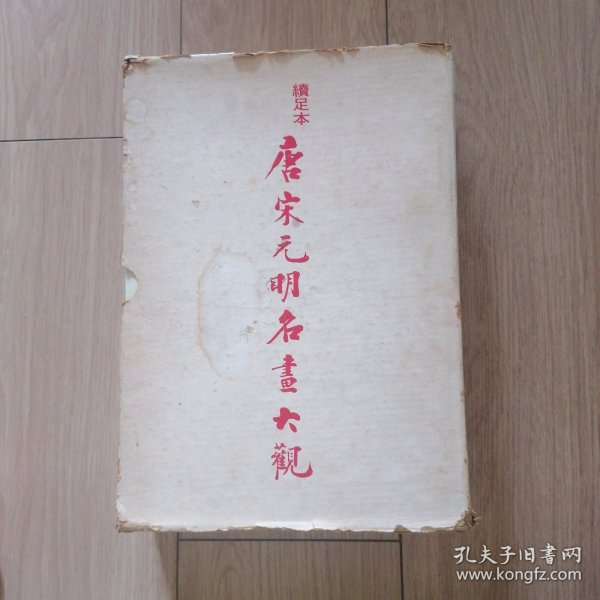 續足本
唐宋元明名畫大觀
孔夫子旧书网
www.kongfz.com